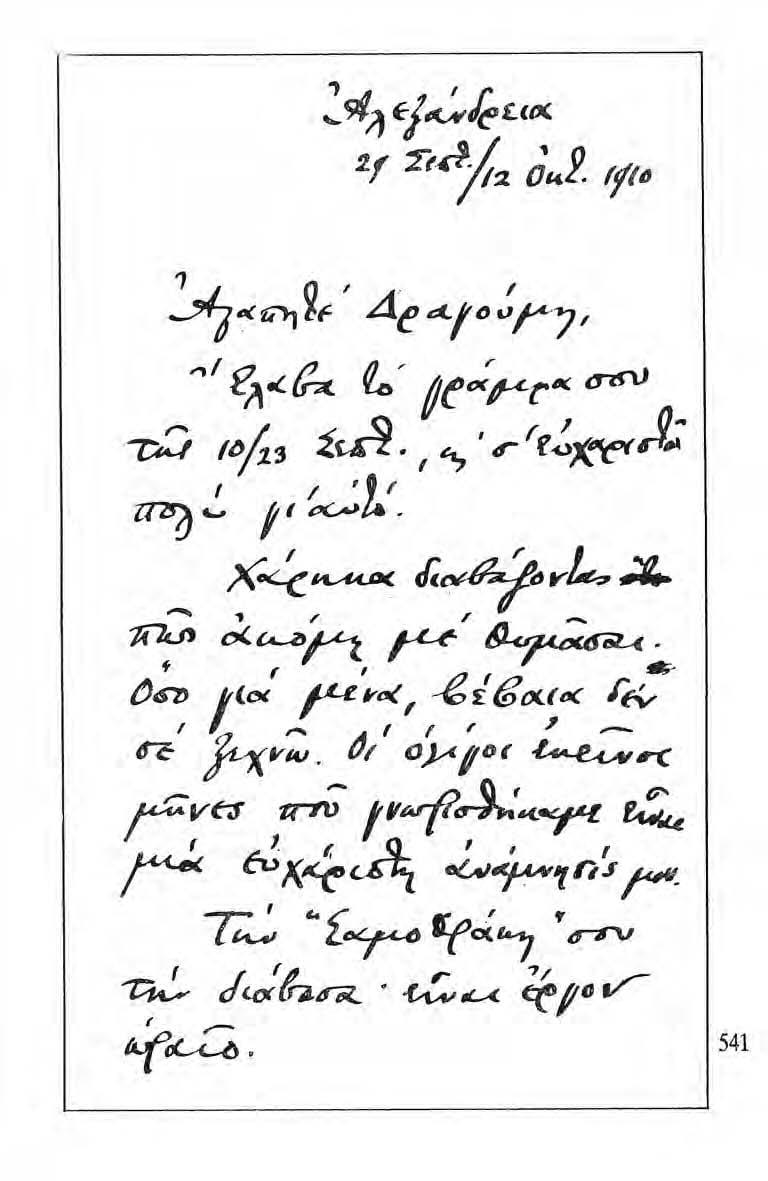 Ἀλεξάνδρεια
29 Σεπτ./12 Ὀκτ. 1910
Ἀγαπητέ Δραγούμη,
Ἔλαβα τό γράμμα σου
τῆς 10/23 Σεπτ., κ' σ' εὐχαριστῶ
πολύ γι' αὐτό.
Χάρηκα διαβάζοντας
πῶς ἀκόμη μέ θυμᾶσαι.
Ὅσο γιά μένα, βέβαια δέν
σέ ξεχνῶ. Οἱ ὀλίγοι ἐκεῖνοι
μῆνες ποῦ γνωρισθήκαμε εἶναι
μιά εὐχάριστη ἀνάμνησίς μου.
Τήν "Σαμοθράκη" σου
τήν διάβασα· εἶναι ἔργον
ὡραῖο.
541